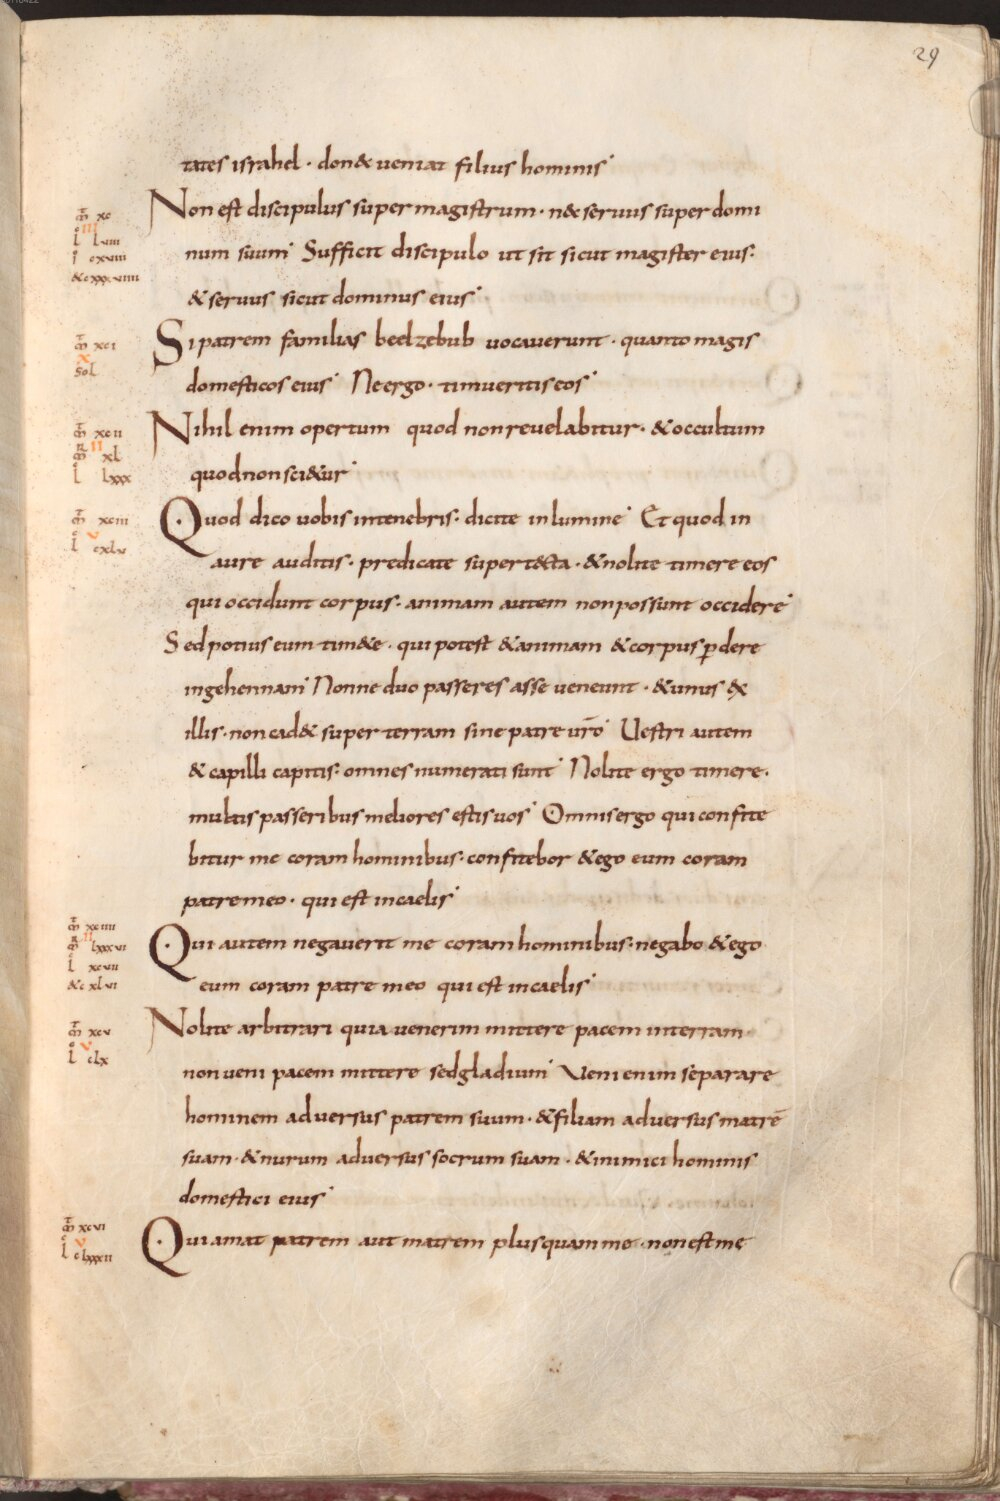 29
tates israhel · don&ueniat filius hominis
Non est discipulus super magistrum · n&seruus super domi
num suum Sufficit discipulo ut sit sicut magister eius:
& seruus sicut dominus eius
Si patrem familias beelzebub uocauerunt · quanto magis
domesticos eius Ne ergo · timueritis eos
Nihil enim opertum quod non reuelabitur · & occultum
quod non sci&ur
Quod dico uobis intenebris · dicite in lumine Et quod in
aure auditis · predicate super t&cta · & nolite timere eos
qui occidunt corpus · animam autem non possunt occidere
Sed potius eum tim&e · qui potest & animam & corpus ꝑdere
ingehennam Nonne duo passeres asse ueneunt · & unus ex
illis · non cad& super terram sine patre ur̄o Uestri autem
& capilli capitis · omnes numerati sunt Nolite ergo timere ·
multis passeribus meliores estis uos Omnis ergo qui confite
bitur me coram hominibus · confitebor & ego eum coram
patre meo · qui est incaelis
Qui autem negauerit me coram hominibus · negabo & ego
eum coram patre meo qui est incaelis
Nolite arbitrari quia uenerim mittere pacem interram
non ueni pacem mittere sed gladium Ueni enim separare
hominem aduersus patrem suum · & filiam aduersus matrē
suam · & nurum aduersus socrum suam · & inimici hominis
domestici eius
Qui amat patrem aut matrem plus quam me · non est me
m̄ xc
III
l lviii
i cxviiii
&c xxxviiii
m̄ xci
x
sol
m̄ xcii
II
xl
l lxxx
m̄ xciii
v
l cxlv
m̄ xciiii
II
lxxxvi
l xcvii
&c xlvi
m̄ xcv
v
l clx
m̄ xcvi
v
l clxxxii